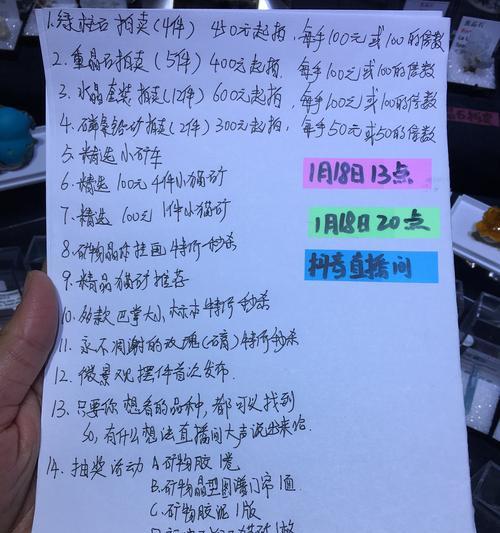 1.绿柱石拍卖(4件) 450元起拍,每手100元或100的倍数
2.重晶石拍卖(5件) 400元起拍,每手100元或100的倍数
3.水晶套装拍卖(12件) 600元起拍,每手100元或100的倍数
4.磷氯铅矿拍卖(2件) 300元起拍,每手50元或50的倍数
5.精选小矿车
6.精选100元4件小猫矿
7.精选 100元 1件小猫矿
8.矿物晶体挂画特价秒杀
9.精品猫矿推荐
10.多款巴掌大小标本特价秒杀
11.永不凋谢的玫瑰(石膏)特价秒杀
12.微景观摆件首次发布.
13.只要你想看的品种,都可以找到
so,有什么想法直播间大声说出来哈
14.抽奖活动 A矿物胶1瓷
B.矿物晶型图谱门帘1道
C.矿物胶泥1版
1月18日13点
1月18日20点
抖音直播间